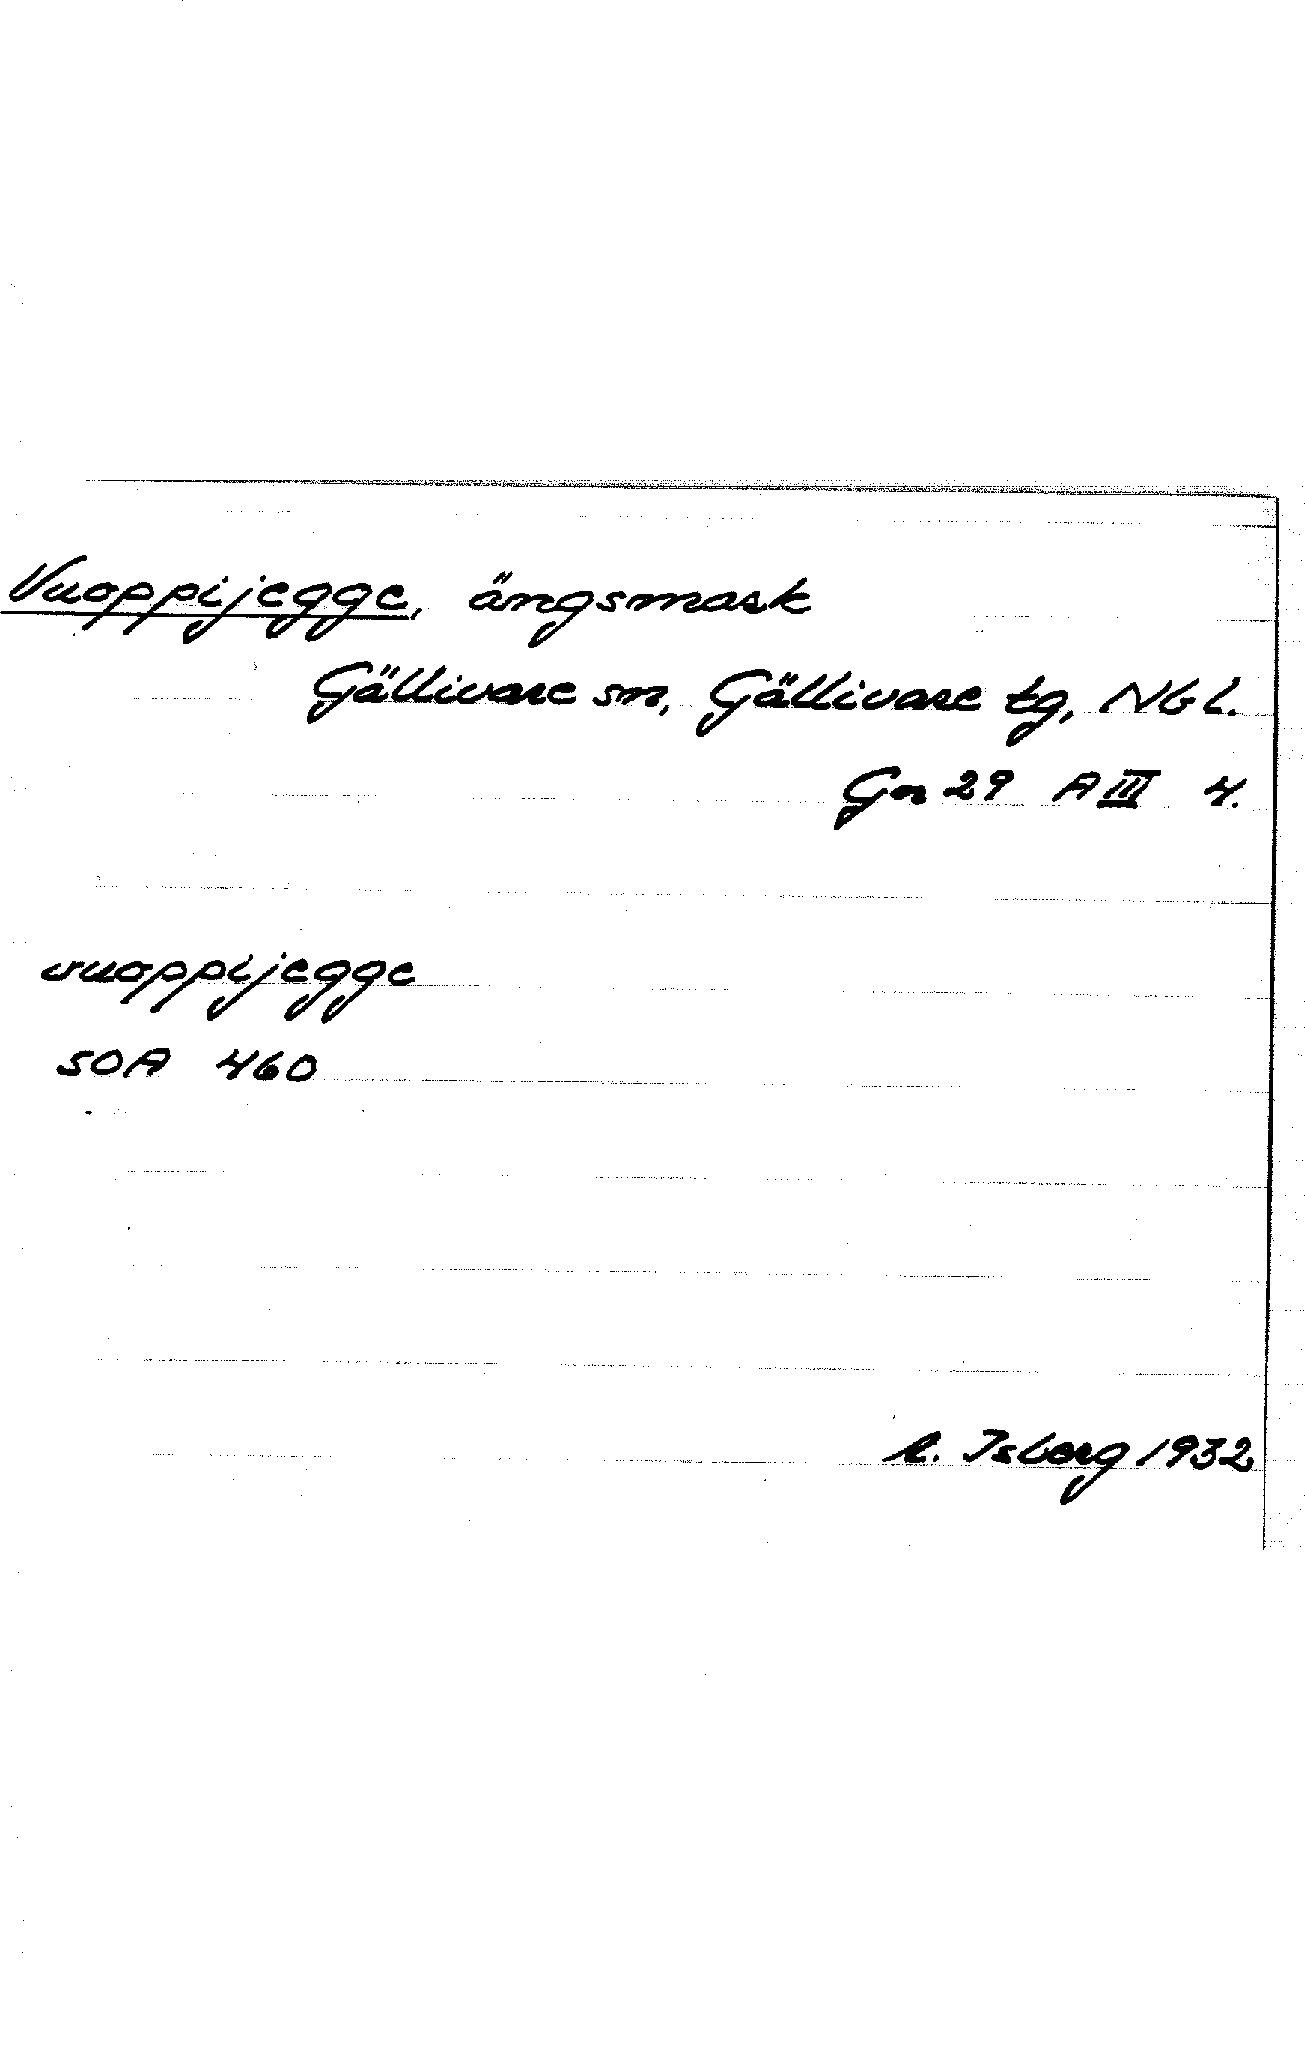 Vuoppijegge, ängsmark
Gällivare sn, Gällivare tg, Nbl.
Gn 29 A III 4.
vuoppijegge
SOA 460
L. Isberg 1932